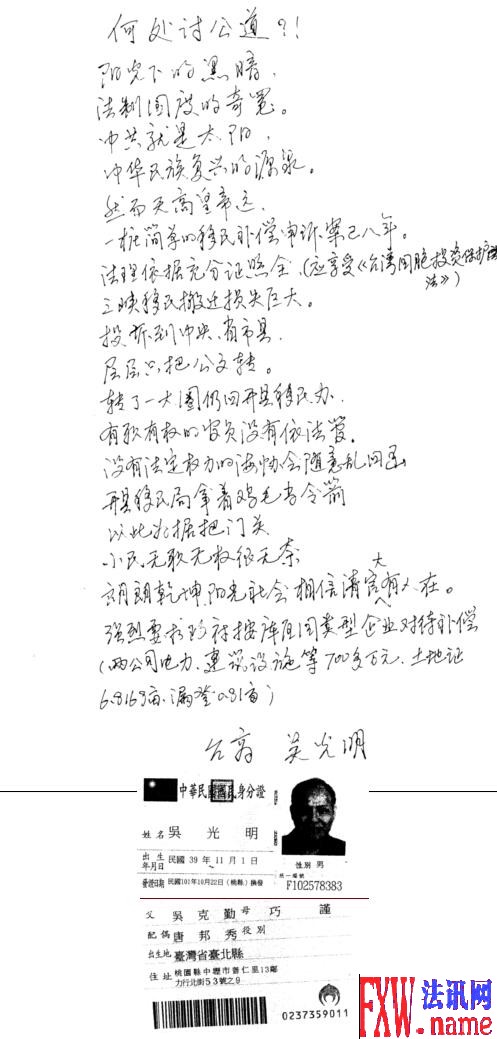 何处讨公道?!
阳光下的黑暗,
法制国度的奇冤。
中共就是太阳,
中华民族复兴的源泉。
然而天高皇帝远,
一桩简单的移民补偿申诉案已八年。
法理依据充分证照全(应享受《台湾同胞投资保护法》)
三峡移民搬迁损失巨大。
投诉到中央、省市县,
层层只把公文转。
转了一大圈仍回开县移民办,
有职有权的官员没有依法管,
没有法定权力的海协会随意乱回函
开县移民局拿着鸡毛当令箭
以此为据把门关
小民无职无权很无奈
朗朗乾坤阳光社会相信清官大有人在。
强烈要求政府按库区同类型企业对待补偿
(两公司电力、建筑设施等700多万元、土地证
6.8169亩、漏登0.81亩)
台商 吴光明
中華民國國民身分證
姓名 吳光明
出生年月日 民國39年11月1日
性別 男
發證日期 民國101年10月22日(桃縣)換發
統一編號
F102578383
父 吳克勤 母 巧謹
配偶 唐邦秀 役別
出生地 臺灣省臺北縣
住址 桃園縣中壢市普仁里13鄰
力行北街53號之9
0237359011
FXW 法讯网
.name